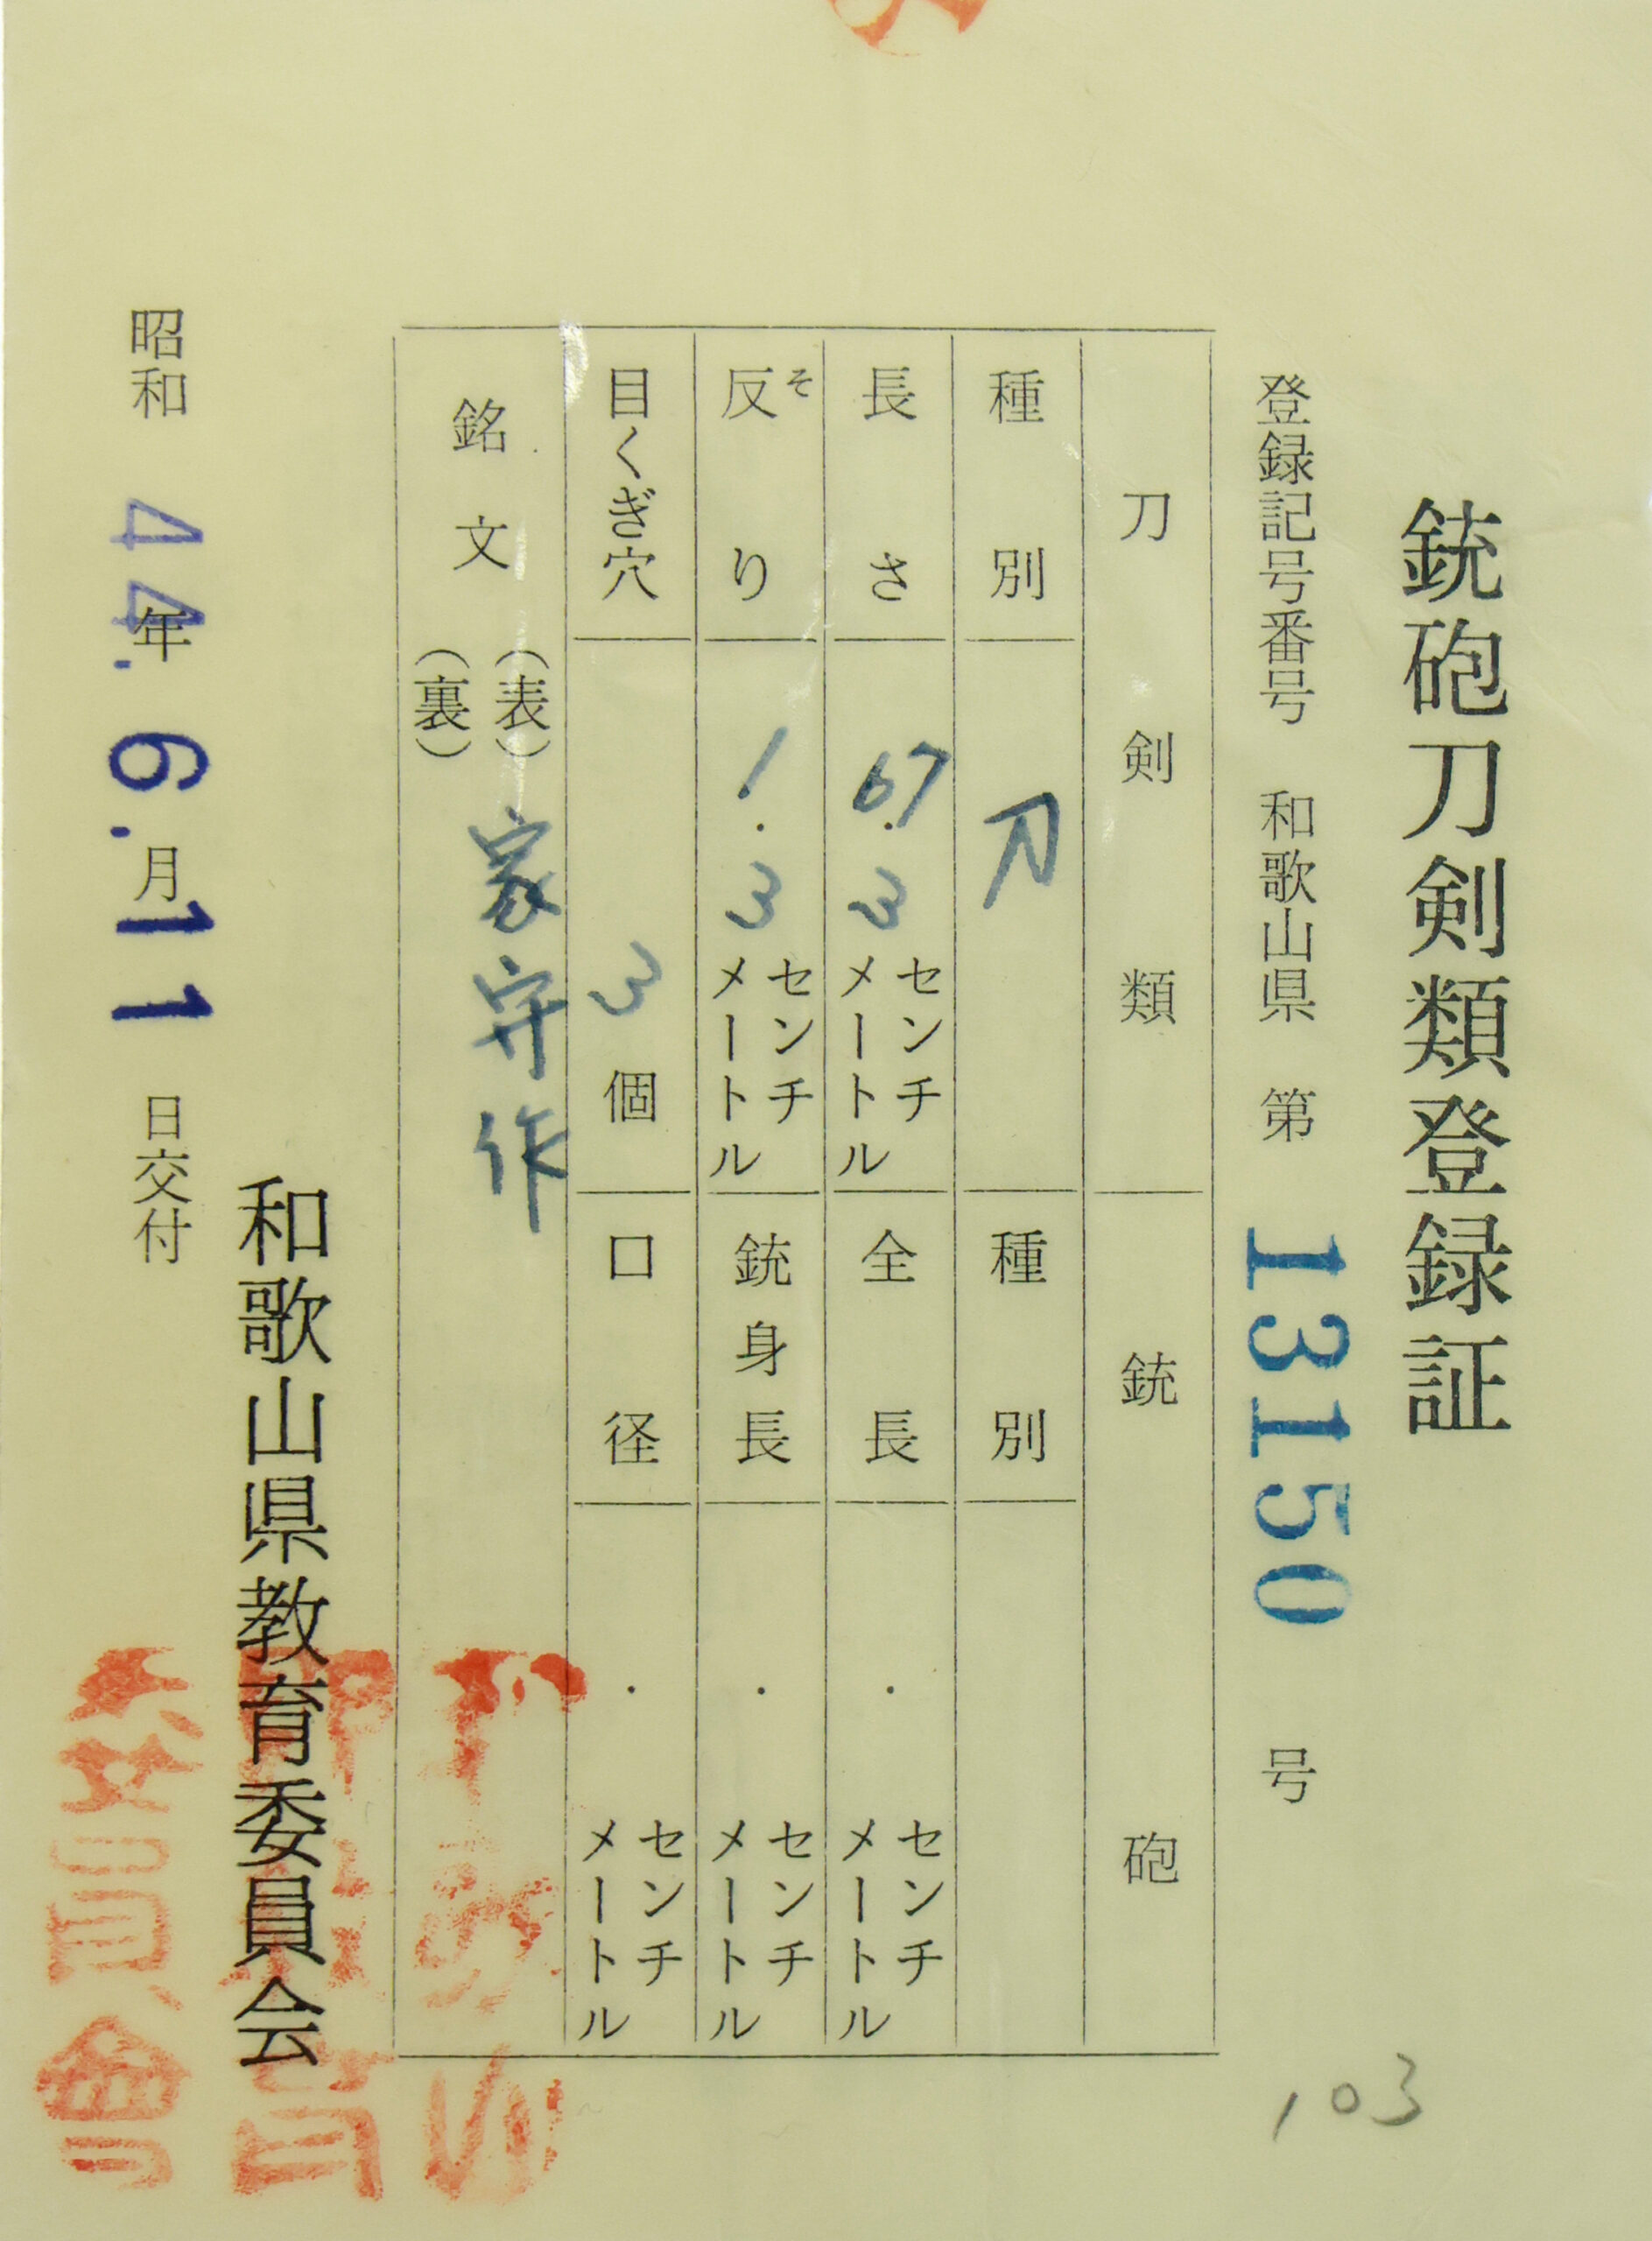 銃砲刀剣類登録証
登録記号番号 和歌山県 第 13150 号
刀剣類 銃砲
種別 刀 種別
長さ 67.3 センチメートル 全長 . センチメートル
反り そ 1.3 センチメートル 銃身長 . センチメートル
目くぎ穴 3 個 口径 . センチメートル
銘文 (表) 家守作
(裏)
和歌山県教育委員会
昭和 44.年 6.月 11 日交付
103